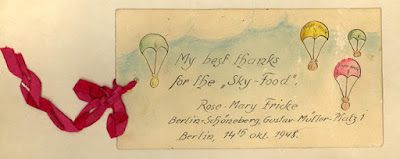 My best thanks
for the „Sky-Food".
Rose-Mary Fricke
Berlin-Schöneberg, Gustav-Müller-Platz 1
Berlin, 14th okt. 1948.